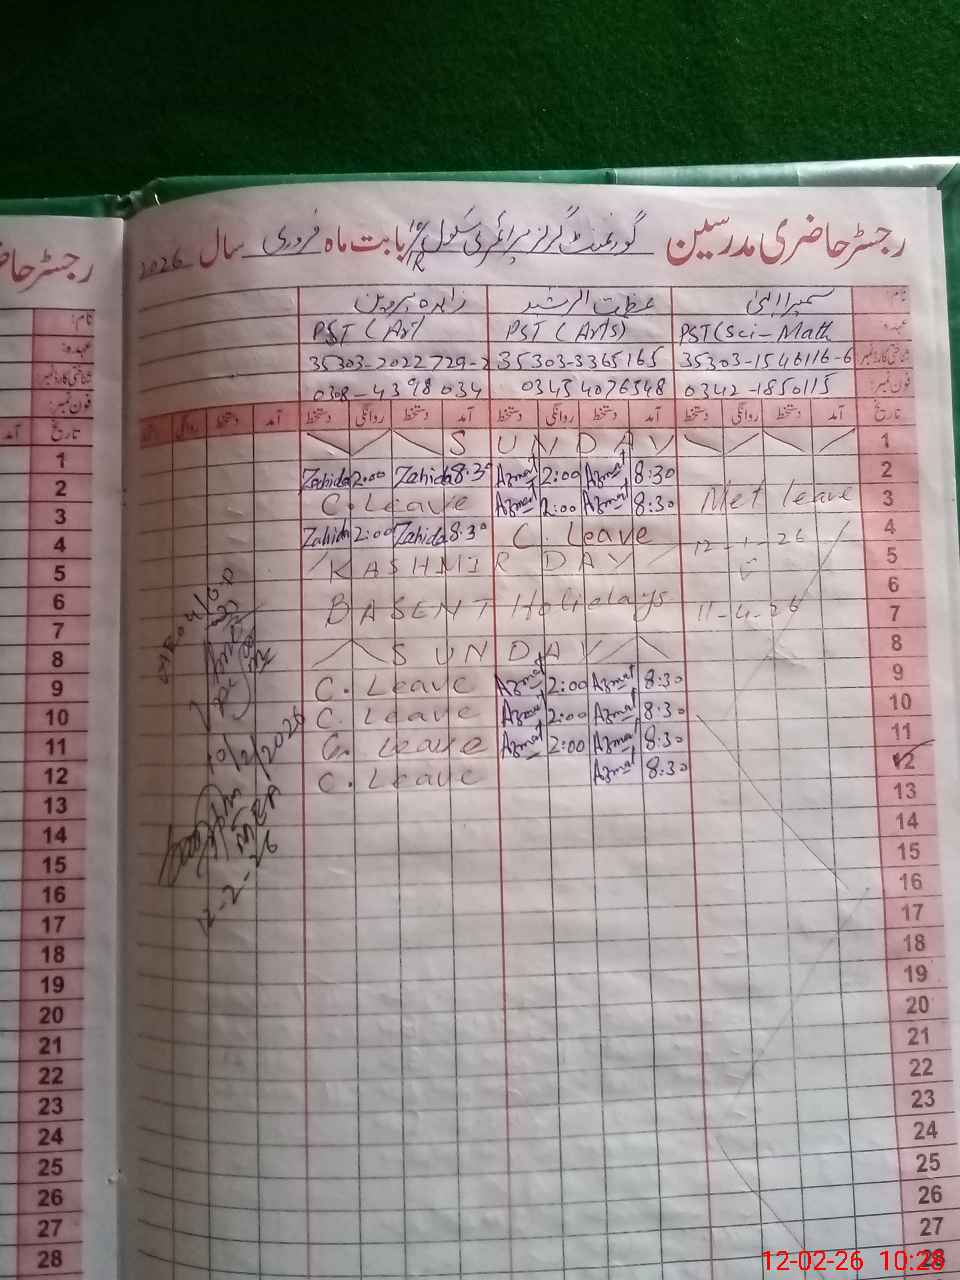 رجسٹر حاضری مدرسین گورنمنٹ گرلز پرائمری سکول بابت ماہ فروری سال 2026
رجسٹر حاضر
نام: عظمت الرشید زاہدہ پروین
عہدہ: PST (Sci-Math PST (Arts) PST (Art)
شناختی کارڈ نمبر: 35303-1540116-6 35303-3365165 35303-2022729-2
فون نمبر: 0342-1850115 0345 4076548 0308-4398034
تاریخ آمد دستخط روانگی دستخط آمد دستخط روانگی دستخط آمد دستخط روانگی دستخط آمد دستخط روانگی دستخط
نام:
عہدہ:
شناختی کارڈ نمبر:
فون نمبر:
تاریخ آمد
1 SUNDAY
2 8:30 Azmat 2:00 Azmat 8:30 Zahida 2:00 Zahida
3 Met leave 8:30 Azmat 2:00 Azmat C. Leave
4 12-1-26 C. Leave 8:30 Zahida 2:00 Zahida
5 KASHMIR DAY
6 BASENT Holidays
7 11-4-26
8 SUNDAY
9 8:30 Azmat 2:00 Azmat C. Leave
10 8:30 Azmat 2:00 Azmat C. Leave
11 8:30 Azmat 2:00 Azmat C. Leave
12 8:30 Azmat C. Leave
13
14
15
16
17
18
19
20
21
22
23
24
25
26
27
28
10/2/2026
MEA
12-2-26
1
2
3
4
5
6
7
8
9
10
11
12
13
14
15
16
17
18
19
20
21
22
23
24
25
26
27
28
12-02-26 10:28